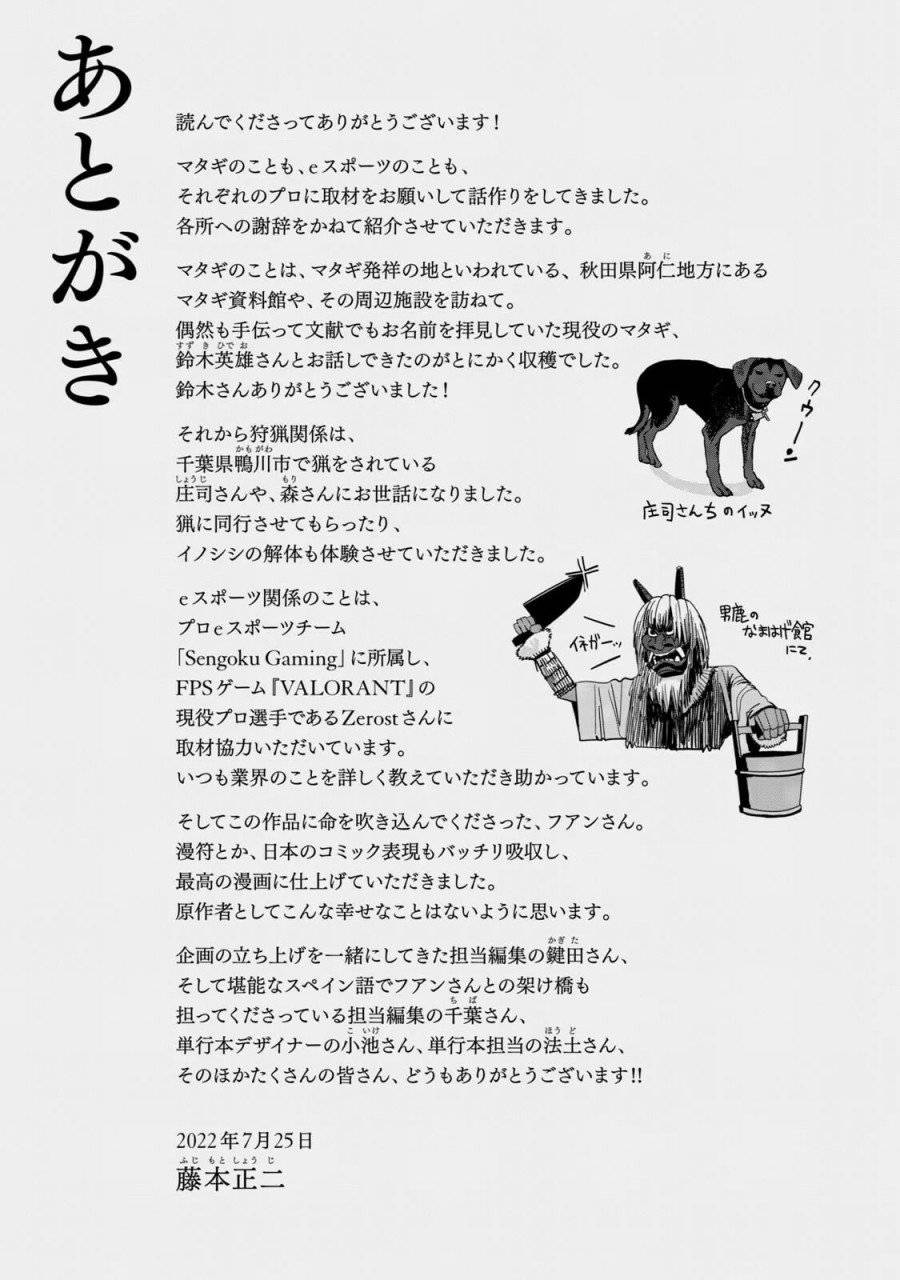 あとがき
読んでくださってありがとうございます！
マタギのことも、eスポーツのことも、
それぞれのプロに取材をお願いして話作りをしてきました。
各所への謝辞をかねて紹介させていただきます。
マタギのことは、マタギ発祥の地といわれている、秋田県阿仁地方にある
あに
マタギ資料館や、その周辺施設を訪ねて。
偶然も手伝って文献でもお名前を拝見していた現役のマタギ、
すずきひでお
鈴木英雄さんとお話しできたのがとにかく収穫でした。
鈴木さんありがとうございました！
クゥーン
庄司さんちのイッヌ
それから狩猟関係は、
かもがわ
千葉県鴨川市で猟をされている
しょうじ もり
庄司さんや、森さんにお世話になりました。
猟に同行させてもらったり、
イノシシの解体も体験させていただきました。
eスポーツ関係のことは、
プロeスポーツチーム
「Sengoku Gaming」に所属し、
FPSゲーム『VALORANT』の
現役プロ選手であるZerostさんに
取材協力いただいています。
いつも業界のことを詳しく教えていただき助かっています。
イネガーッ
男鹿の
なまはげ館
にて。
そしてこの作品に命を吹き込んでくださった、フアンさん。
漫符とか、日本のコミック表現もバッチリ吸収し、
最高の漫画に仕上げていただきました。
原作者としてこんな幸せなことはないように思います。
かぎた
企画の立ち上げを一緒にしてきた担当編集の鍵田さん、
そして堪能なスペイン語でフアンさんとの架け橋も
ちば
担ってくださっている担当編集の千葉さん、
こいけ ほうど
単行本デザイナーの小池さん、単行本担当の法土さん、
そのほかたくさんの皆さん、どうもありがとうございます!!
2022年7月25日
ふじもとしょうじ
藤本正二